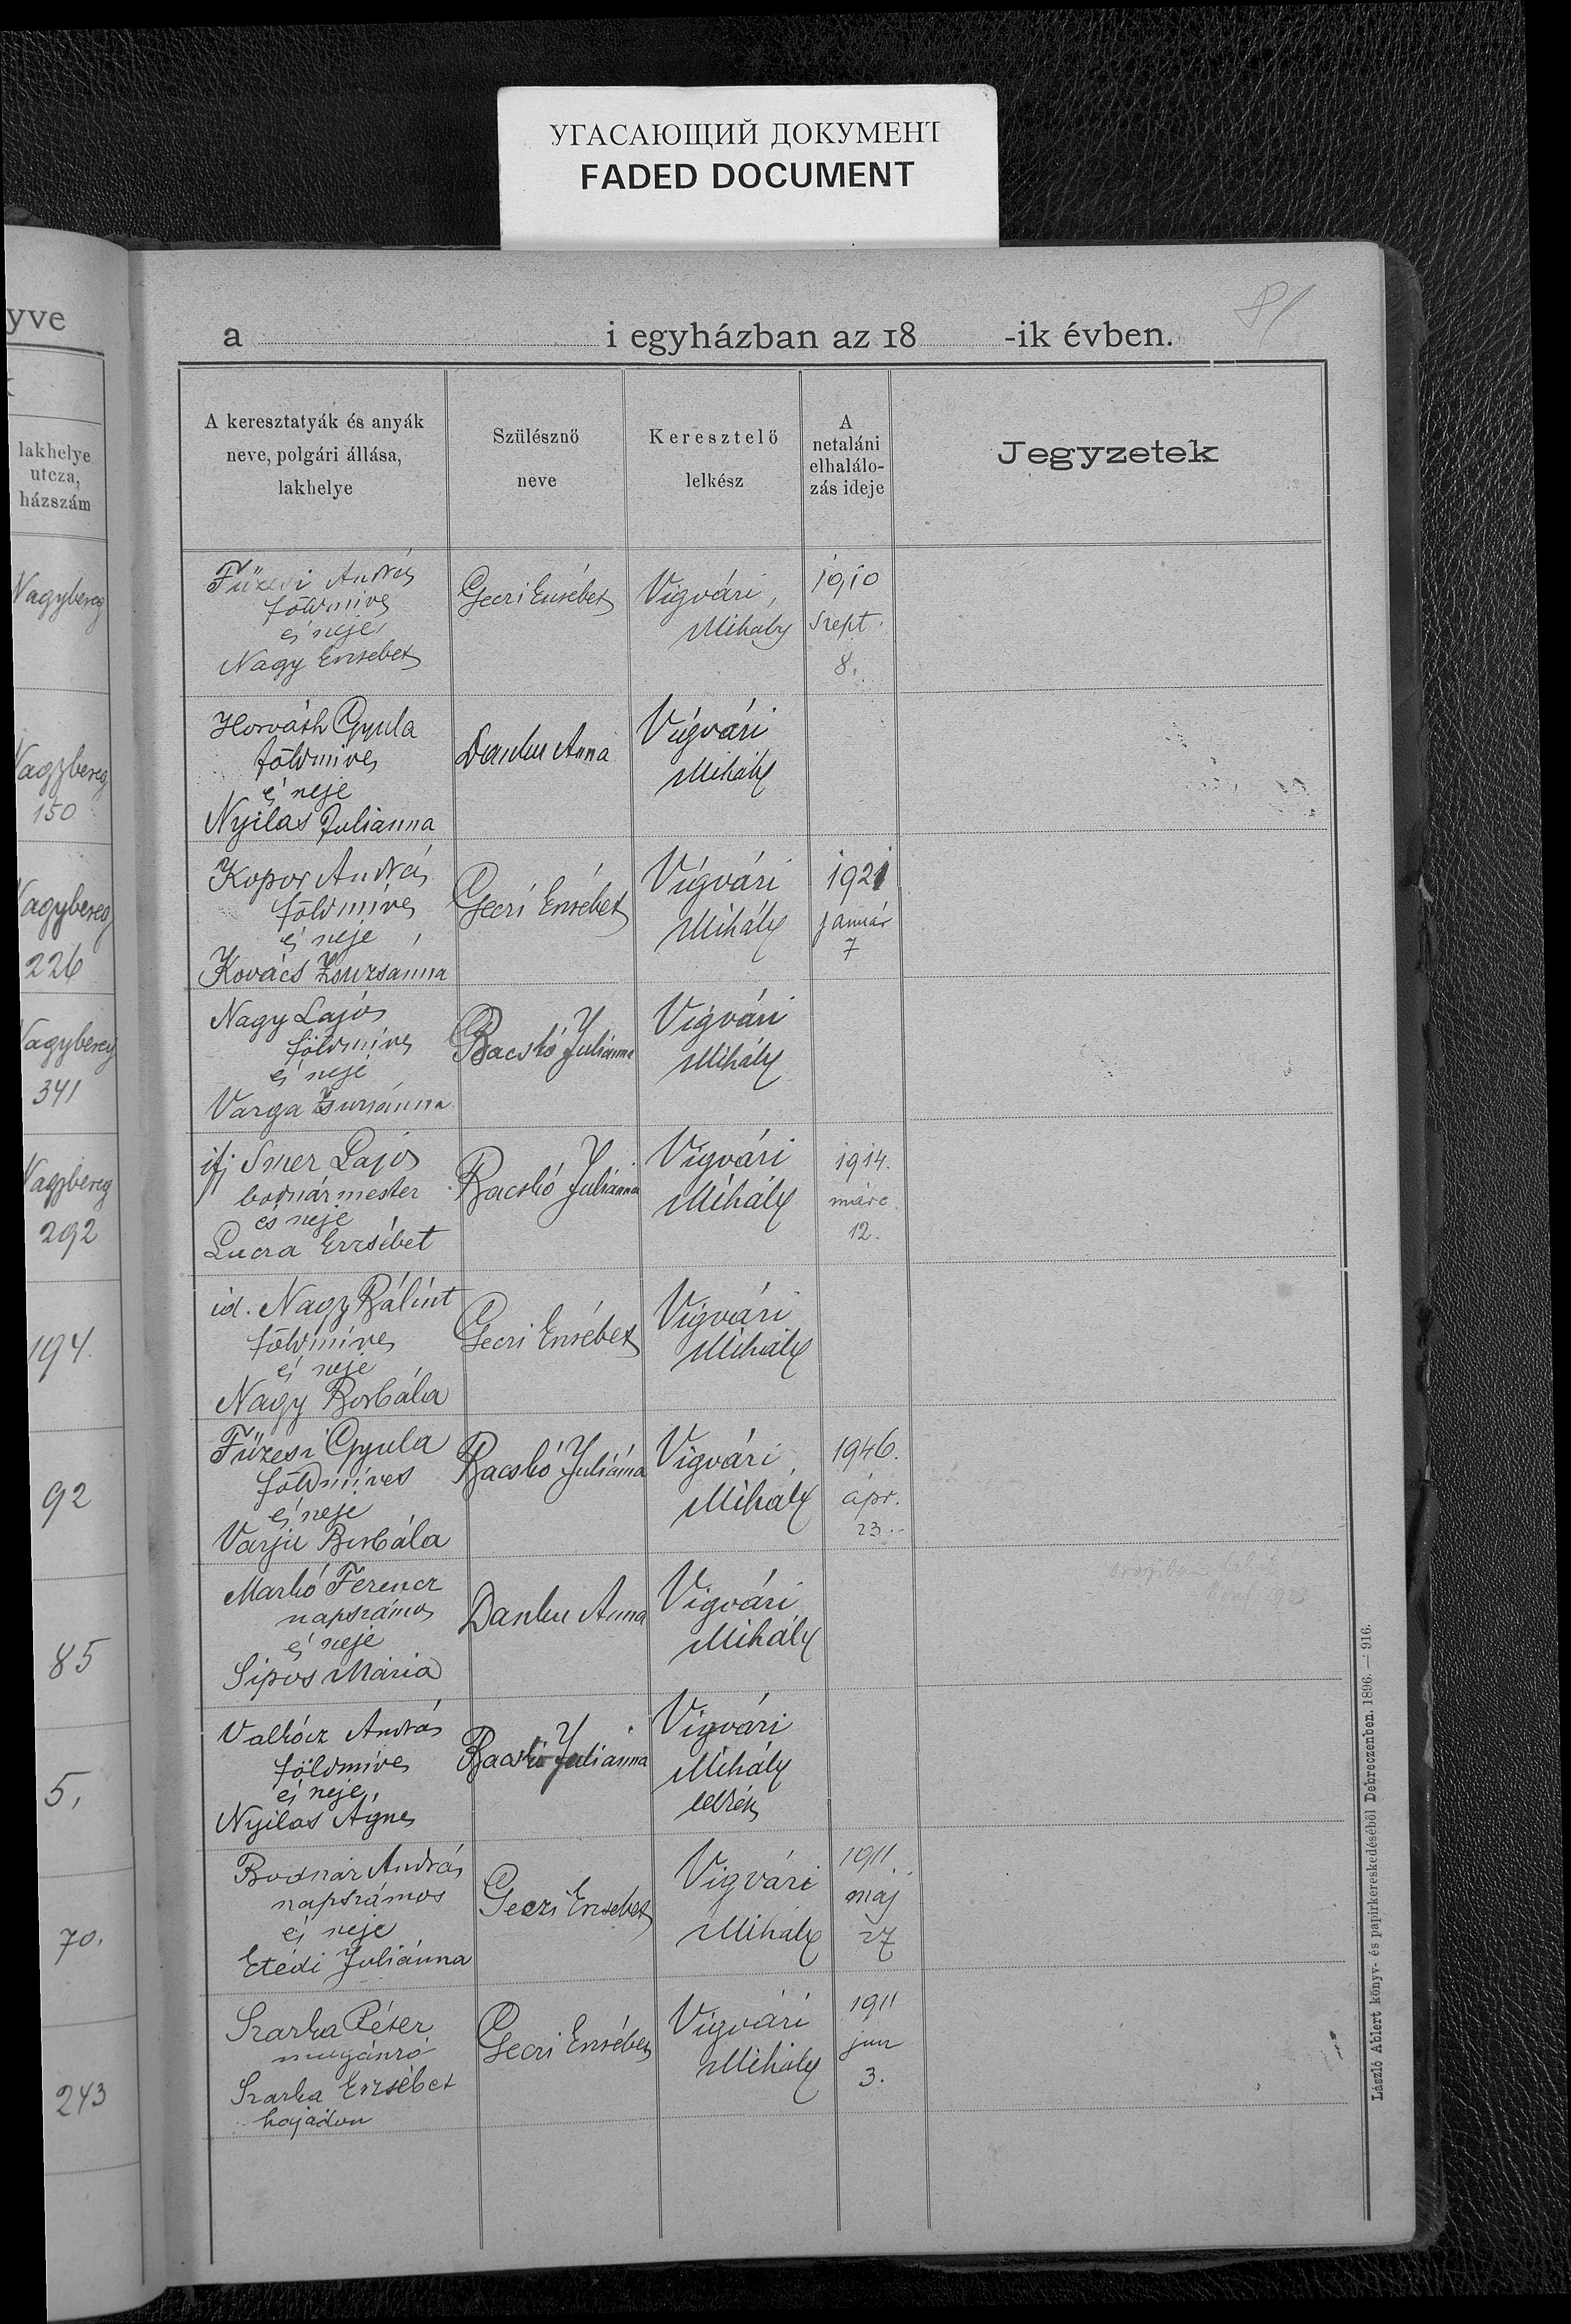 УГАСАЮЩИЙ ДОКУМЕНТ
FADED DOCUMENT
81
yve
a i egyházban az 18 -ik évben.
lakhelye
utcza,
házszám
A keresztatyák és anyák
neve, polgári állása,
lakhelye
Szülésznő
neve
Keresztelő
lelkész
A
netaláni
elhalálo-
zás ideje
Jegyzetek
Nagybereg
Füzesi András
földmives
és neje
Nagy Erzsébet
Geczi Erzsébet
Vigvári
Mihály
1910
Szept.
8.
Nagybereg
150
Horváth Gyula
földmives
és neje
Nyilas Julianna
Danku Anna
Vigvári
Mihály
Nagybereg
226
Kopor András
földmives
és neje
Kovács Zsuzsanna
Geczi Erzsébet
Vigvári
Mihály
1921
január
7
Nagybereg
341
Nagy Lajos
földmives
és neje
Varga Zsuzsánna
Bacskó Juliánna
Vigvári
Mihály
Nagybereg
292
ifj Smer Lajos
bodnármester
és neje
Lucza Erzsébet
Bacskó Juliánna
Vigvári
Mihály
1914.
márc.
12.
194.
id. Nagy Bálint
földmives
és neje
Nagy Borbála
Geczi Erzsébet
Vigvári
Mihály
92
Füzesi Gyula
földmives
és neje
Varju Borbála
Bacskó Juliánna
Vigvári
Mihály
1946.
ápr.
23.
85
Markó Ferencz
napszámos
és neje
Sipos Mária
Danku Anna
Vigvári
Mihály
1923
5,
Valkócz András
földmives
és neje,
Nyilas Ágnes
Bacskó Julianna
Vigvári
Mihály
lelkész
70.
Bodnár András
napszámos
és neje
Etédi Juliánna
Geczi Erzsébet
Vigvári
Mihály
1911
máj.
27
243
Szarka Péter
magánzó
Szarka Erzsébet
hajadon
Geczi Erzsébet
Vigvári
Mihály
1911
jun
3.
László Albert könyv- és papirkereskedéséből Debreczenben. 1896. — 916.